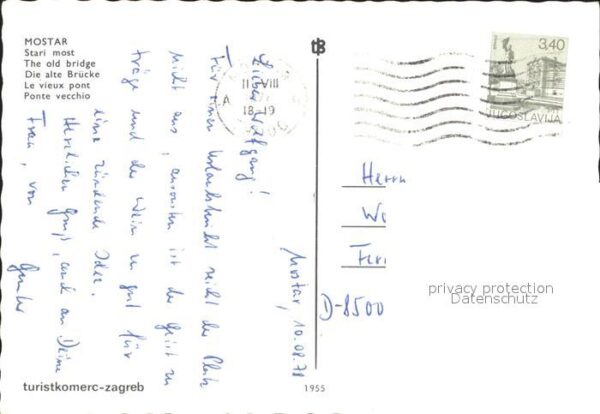 MOSTAR
Stari most
The old bridge
Die alte Brücke
Le vieux pont
Ponte vecchio
Mostar, 10.08.78
Lieber Wolfgang!
Für einen Urlaubsbericht reicht der Platz
nicht aus, ansonsten ist der Geist zu
träge und der Wein zu gut für
eine zündende Idee.
Herzlichen Gruß, auch an Deine
Frau, von
Gunter
turistkomerc-zagreb
1955
II VIII
A
18-19
3,40
JUGOSLAVIJA
Herrn
Wo
Feri
D-8500
privacy protection
Datenschutz